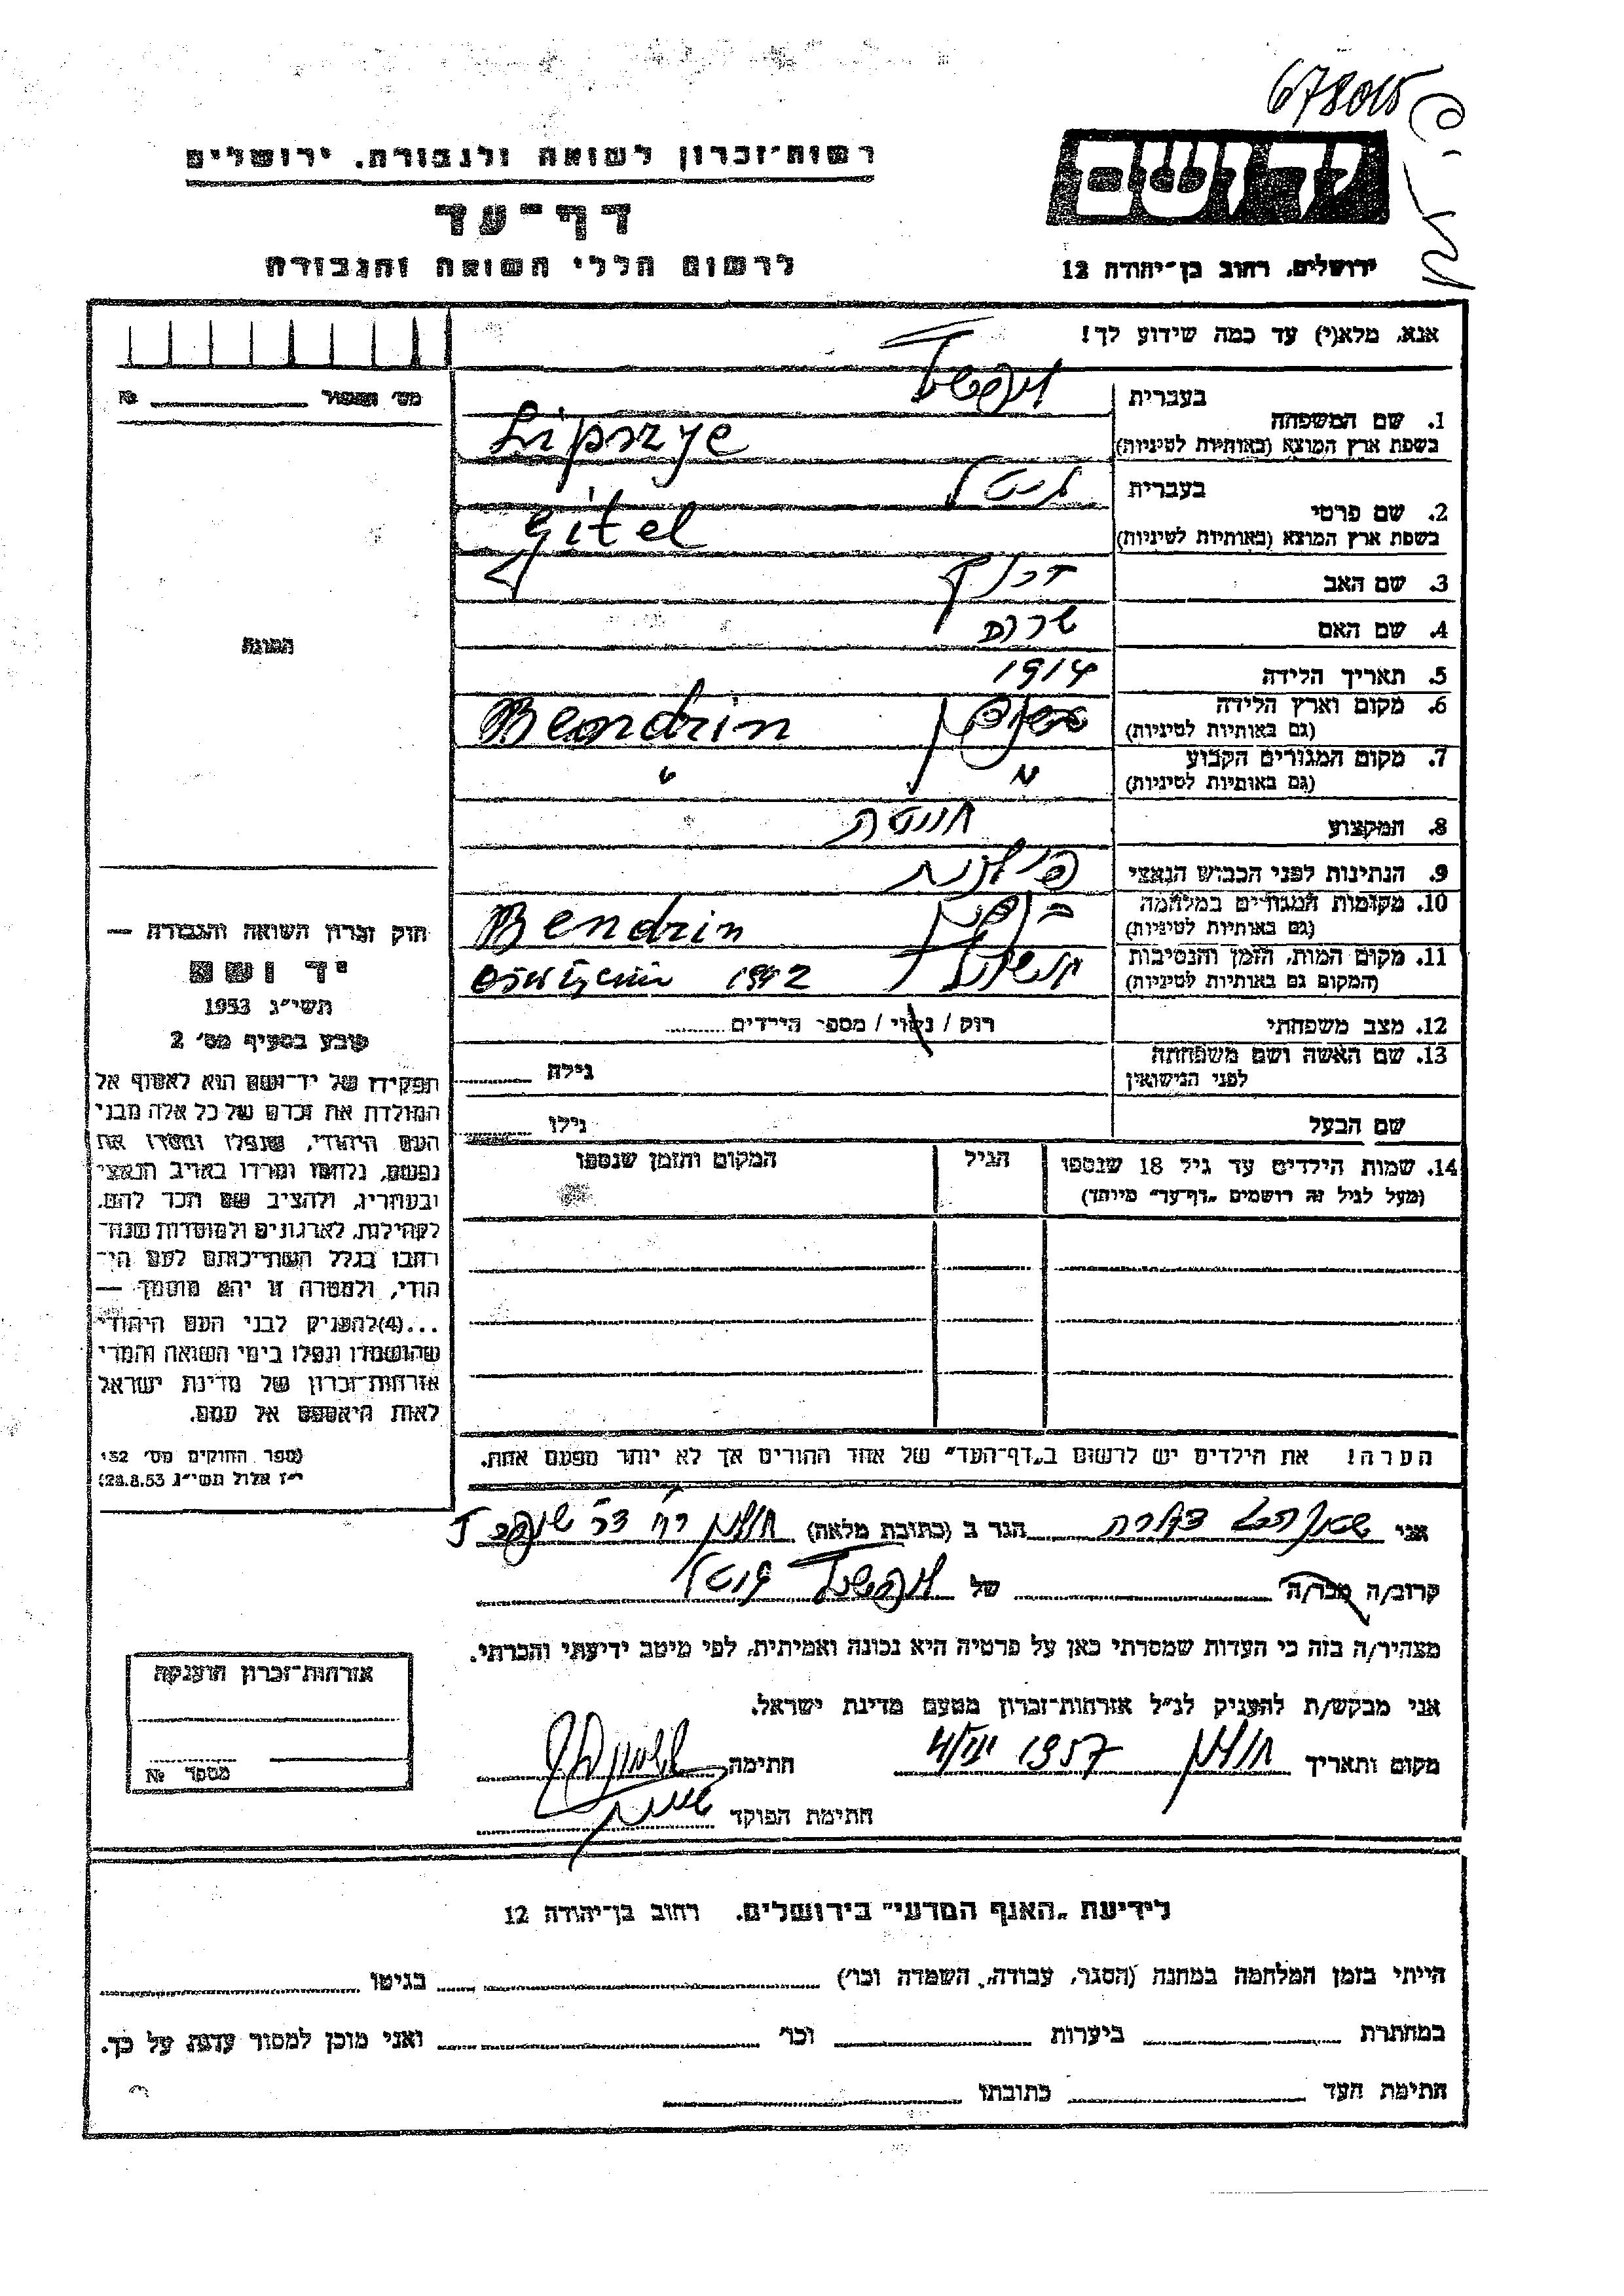 678015
רשות־זכרון לשואה ולגבורה. ירושלים
דף־עד
לרשום חללי השואה והגבורה
יד ושם
ירושלים, רחוב בן־יהודה 12
אנא, מלא(י) עד כמה שידוע לך!
מס׳ הספור № ______
1. שם המשפחה
בעברית
בשפת ארץ המוצא (באותיות לטיניות) Lipszyc
2. שם פרטי
בעברית גיטל
בשפת ארץ המוצא (באותיות לטיניות) Gitel
3. שם האב
4. שם האם
5. תאריך הלידה 1914
6. מקום וארץ הלידה
(גם באותיות לטיניות) Bendzin
7. מקום המגורים הקבוע
(גם באותיות לטיניות) " "
8. המקצוע
9. הנתינות לפני הכבוש הנאצי
10. מקומות המגורים במלחמה
(גם באותיות לטיניות) Bendzin
11. מקום המות, הזמן והנסיבות
(המקום גם באותיות לטיניות) 1942
12. מצב משפחתי רוק / נשוי / מספר הילדים
13. שם האשה ושם משפחתה
לפני הנישואין גילה
שם הבעל גילו
14. שמות הילדים עד גיל 18 שנספו הגיל המקום והזמן שנספו
(מעל לגיל זה רושמים „דף־עד" מיוחד)
הערה! את הילדים יש לרשום ב„דף־העד" של אחד ההורים אך לא יותר מפעם אחת.
התמונה
חוק זכרון השואה והגבורה —
יד ושם
תשי״ג 1953
קובע בסעיף מס׳ 2
תפקידו של יד־ושם הוא לאסוף אל
המולדת את זכרם של כל אלה מבני
העם היהודי, שנפלו ומסרו את
נפשם, נלחמו ומרדו באויב הנאצי
ובעוזריו, ולהציב שם וזכר להם,
לקהילות, לארגונים ולמוסדות שנח־
רבו בגלל השתייכותם לעם הי־
הודי, ולמטרה זו יהא מוסמך —
...(4)להעניק לבני העם היהודי
שהושמדו ונפלו בימי השואה והמרי
אזרחות־זכרון של מדינת ישראל
לאות היאספם אל עמם.
(ספר החוקים מס׳ 132
י״ז אלול תשי״ג 28.8.53)
אני הגר ב (כתובת מלאה) חולון
קרוב/ה מכר/ה של גיטל
מצהיר/ה בזה כי העדות שמסרתי כאן על פרטיה היא נכונה ואמיתית, לפי מיטב ידיעתי והכרתי.
אני מבקש/ת להעניק לנ״ל אזרחות־זכרון מטעם מדינת ישראל.
מקום ותאריך חולון 1957 חתימה
חתימת הפוקד
אזרחות־זכרון הוענקה
מספר №
לידיעת „האגף המדעי" בירושלים, רחוב בן־יהודה 12
הייתי בזמן המלחמה במחנה (הסגר, עבודה, השמדה וכו׳) בגיטו
במחתרת ביערות וכו׳ ואני מוכן למסור עדות על כך.
חתימת העד כתובתו